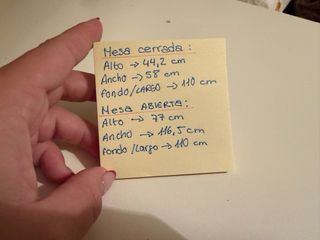 Mesa cerrada:
Alto → 44,2 cm
Ancho → 58 cm
Fondo/LARGO → 110 cm
Mesa ABIERTA:
Alto → 77 cm
Ancho → 116,5 cm
Fondo/Largo → 110 cm